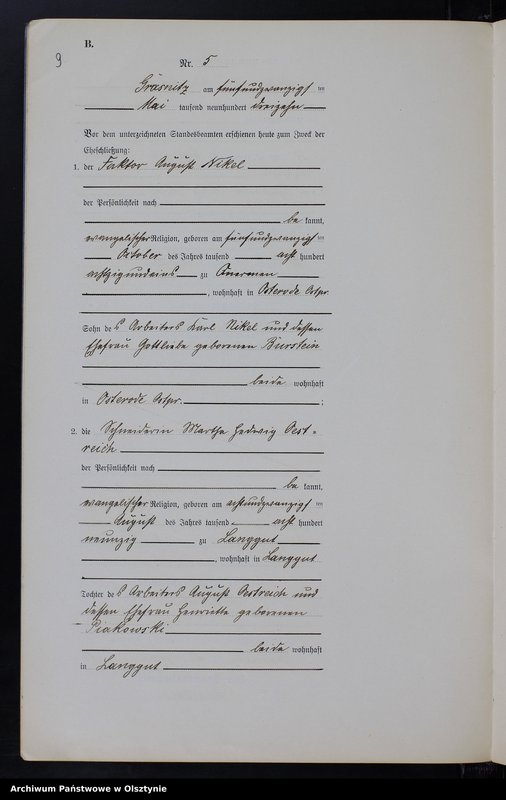 B.
9
Nr. 5
Gräsnitz am fünfundzwanzigs ten
Mai tausend neunhundert dreizehn
Vor dem unterzeichneten Standesbeamten erschienen heute zum Zweck der
Eheschließung:
1. der Faktor August Nikel
der Persönlichkeit nach
be kannt,
evangelischer Religion, geboren am fünfundzwanzigs ten
October des Jahres tausend acht hundert
achtzigundeins zu
, wohnhaft in Osterode Ostpr.
Sohn des Arbeiters Karl Nikel und dessen
Ehefrau Gottliebe geborenen Burstein
beide wohnhaft
in Osterode Ostpr. ;
2. die Schneiderin Martha Hedwig Oest-
reich
der Persönlichkeit nach
be kannt,
evangelischer Religion, geboren am achtundzwanzigs ten
August des Jahres tausend acht hundert
neunzig zu Langgut
, wohnhaft in Langgut
Tochter des Arbeiters August Oestreich und
dessen Ehefrau Henriette geborenen
Piakowski
beide wohnhaft
in Langgut
Archiwum Państwowe w Olsztynie